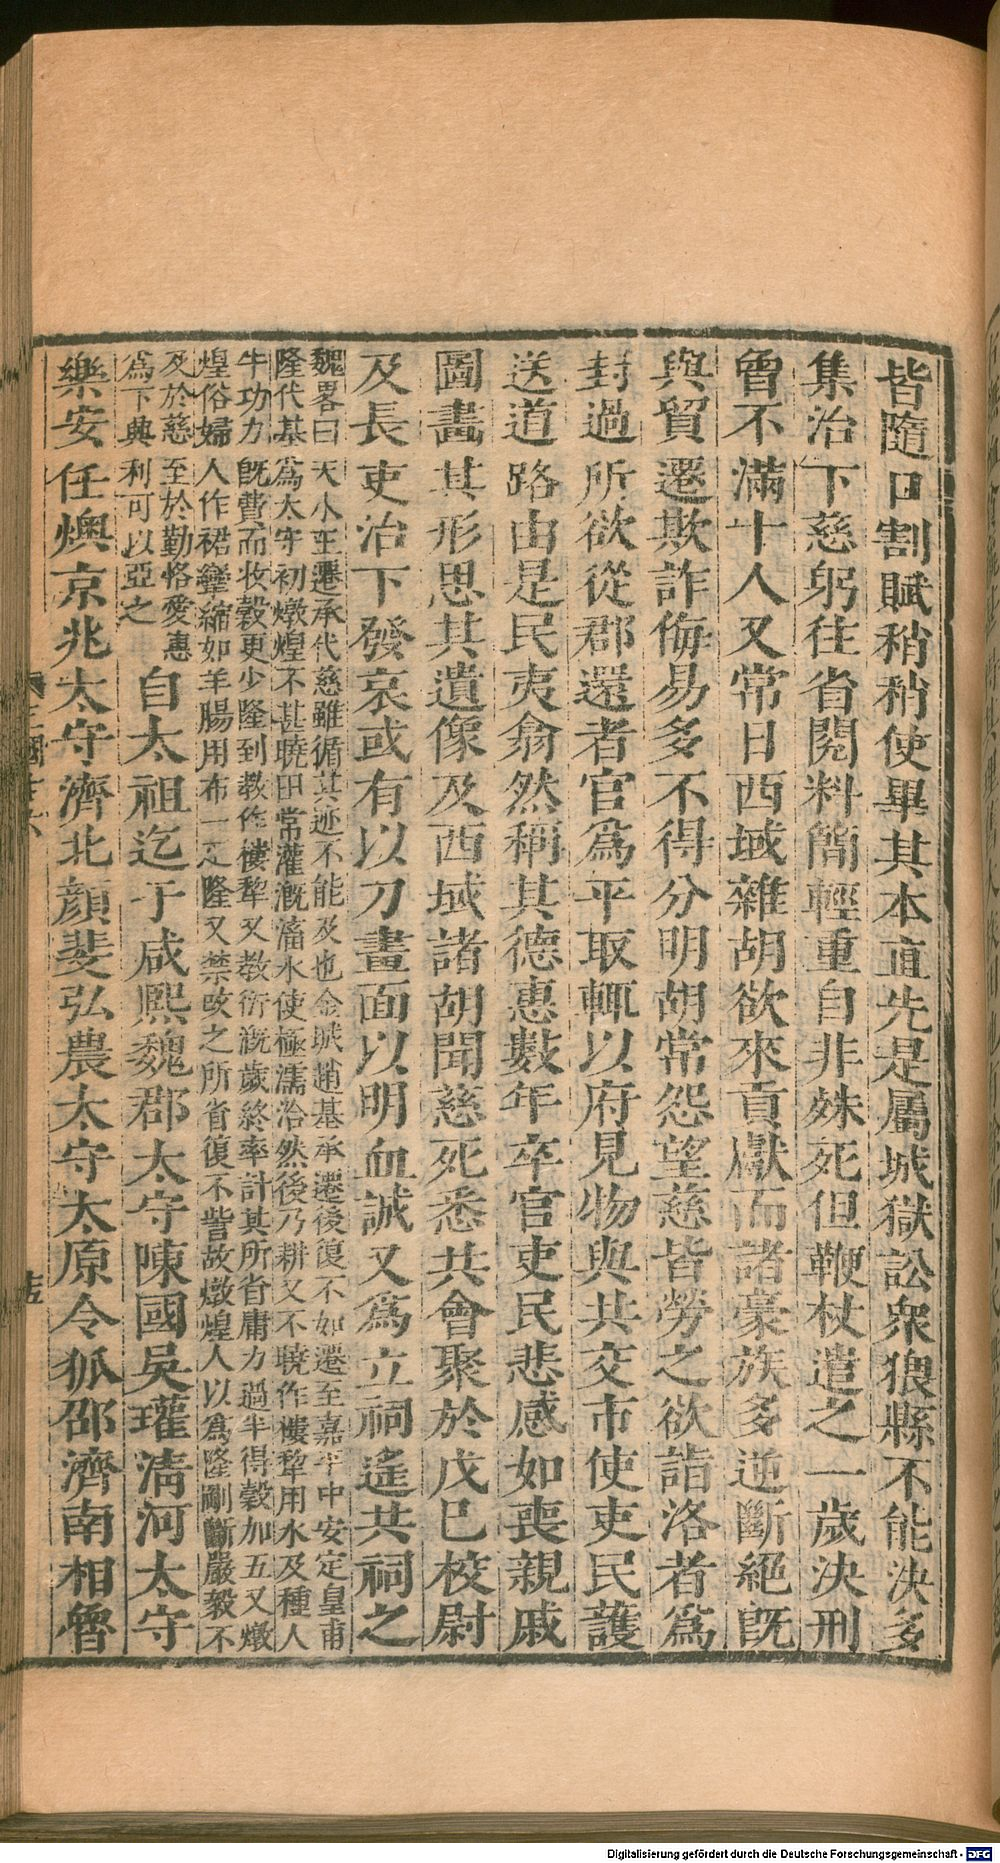 皆隨口割賦稍稍使畢其本直先是屬城獄訟衆猥縣不能決多
集治下慈躬往省閱料簡輕重自非殊死但鞭杖遣之一歲決刑
曾不滿十人又常日西域雜胡欲來貢獻而諸豪族多逆斷絕旣
與貿遷欺詐侮易多不得分明胡常怨望慈皆勞之欲詣洛者爲
封過所欲從郡還者官爲平取輒以府見物與共交市使吏民護
送道路由是民夷翕然稱其德惠數年卒官吏民悲感如喪親戚
圖畫其形思其遺像及西域諸胡聞慈死悉共會聚於戊巳校尉
及長吏治下發哀或有以刀畫面以明血誠又爲立祠遙共祠之
魏畧曰天水王遷承代慈雖循其迹不能及也金城趙基承遷後復不如遷至嘉平中安定皇甫
隆代基爲太守初燉煌不甚曉田常灌漑滀水使極濡洽然後乃耕又不曉作耬犂用水及種人
牛功力旣費而收穀更少隆到教作耬犂又教衍漑歲終率計其所省庸力過半得穀加五又燉
煌俗婦人作裙攣縮如羊腸用布一疋隆又禁改之所省復不訾故燉煌人以爲隆剛斷嚴毅不
及於慈至於勤恪愛惠
爲下典利可以亞之
自太祖迄于咸熙魏郡太守陳國吳瓘淸河太守
樂安任燠京兆太守濟北顔斐弘農太守太原令狐邵濟南相魯
三國志十六
十五
Digitalisierung gefördert durch die Deutsche Forschungsgemeinschaft - DFG